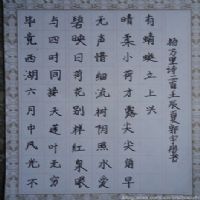 毕竟西湖六月中风光不
与四时同接天莲叶无穷
碧映日荷花别样红泉眼
无声惜细流树阴照水爱
晴柔小荷才露尖尖角早
有蜻蜓立上头
杨万里诗二首壬辰夏郭宇书